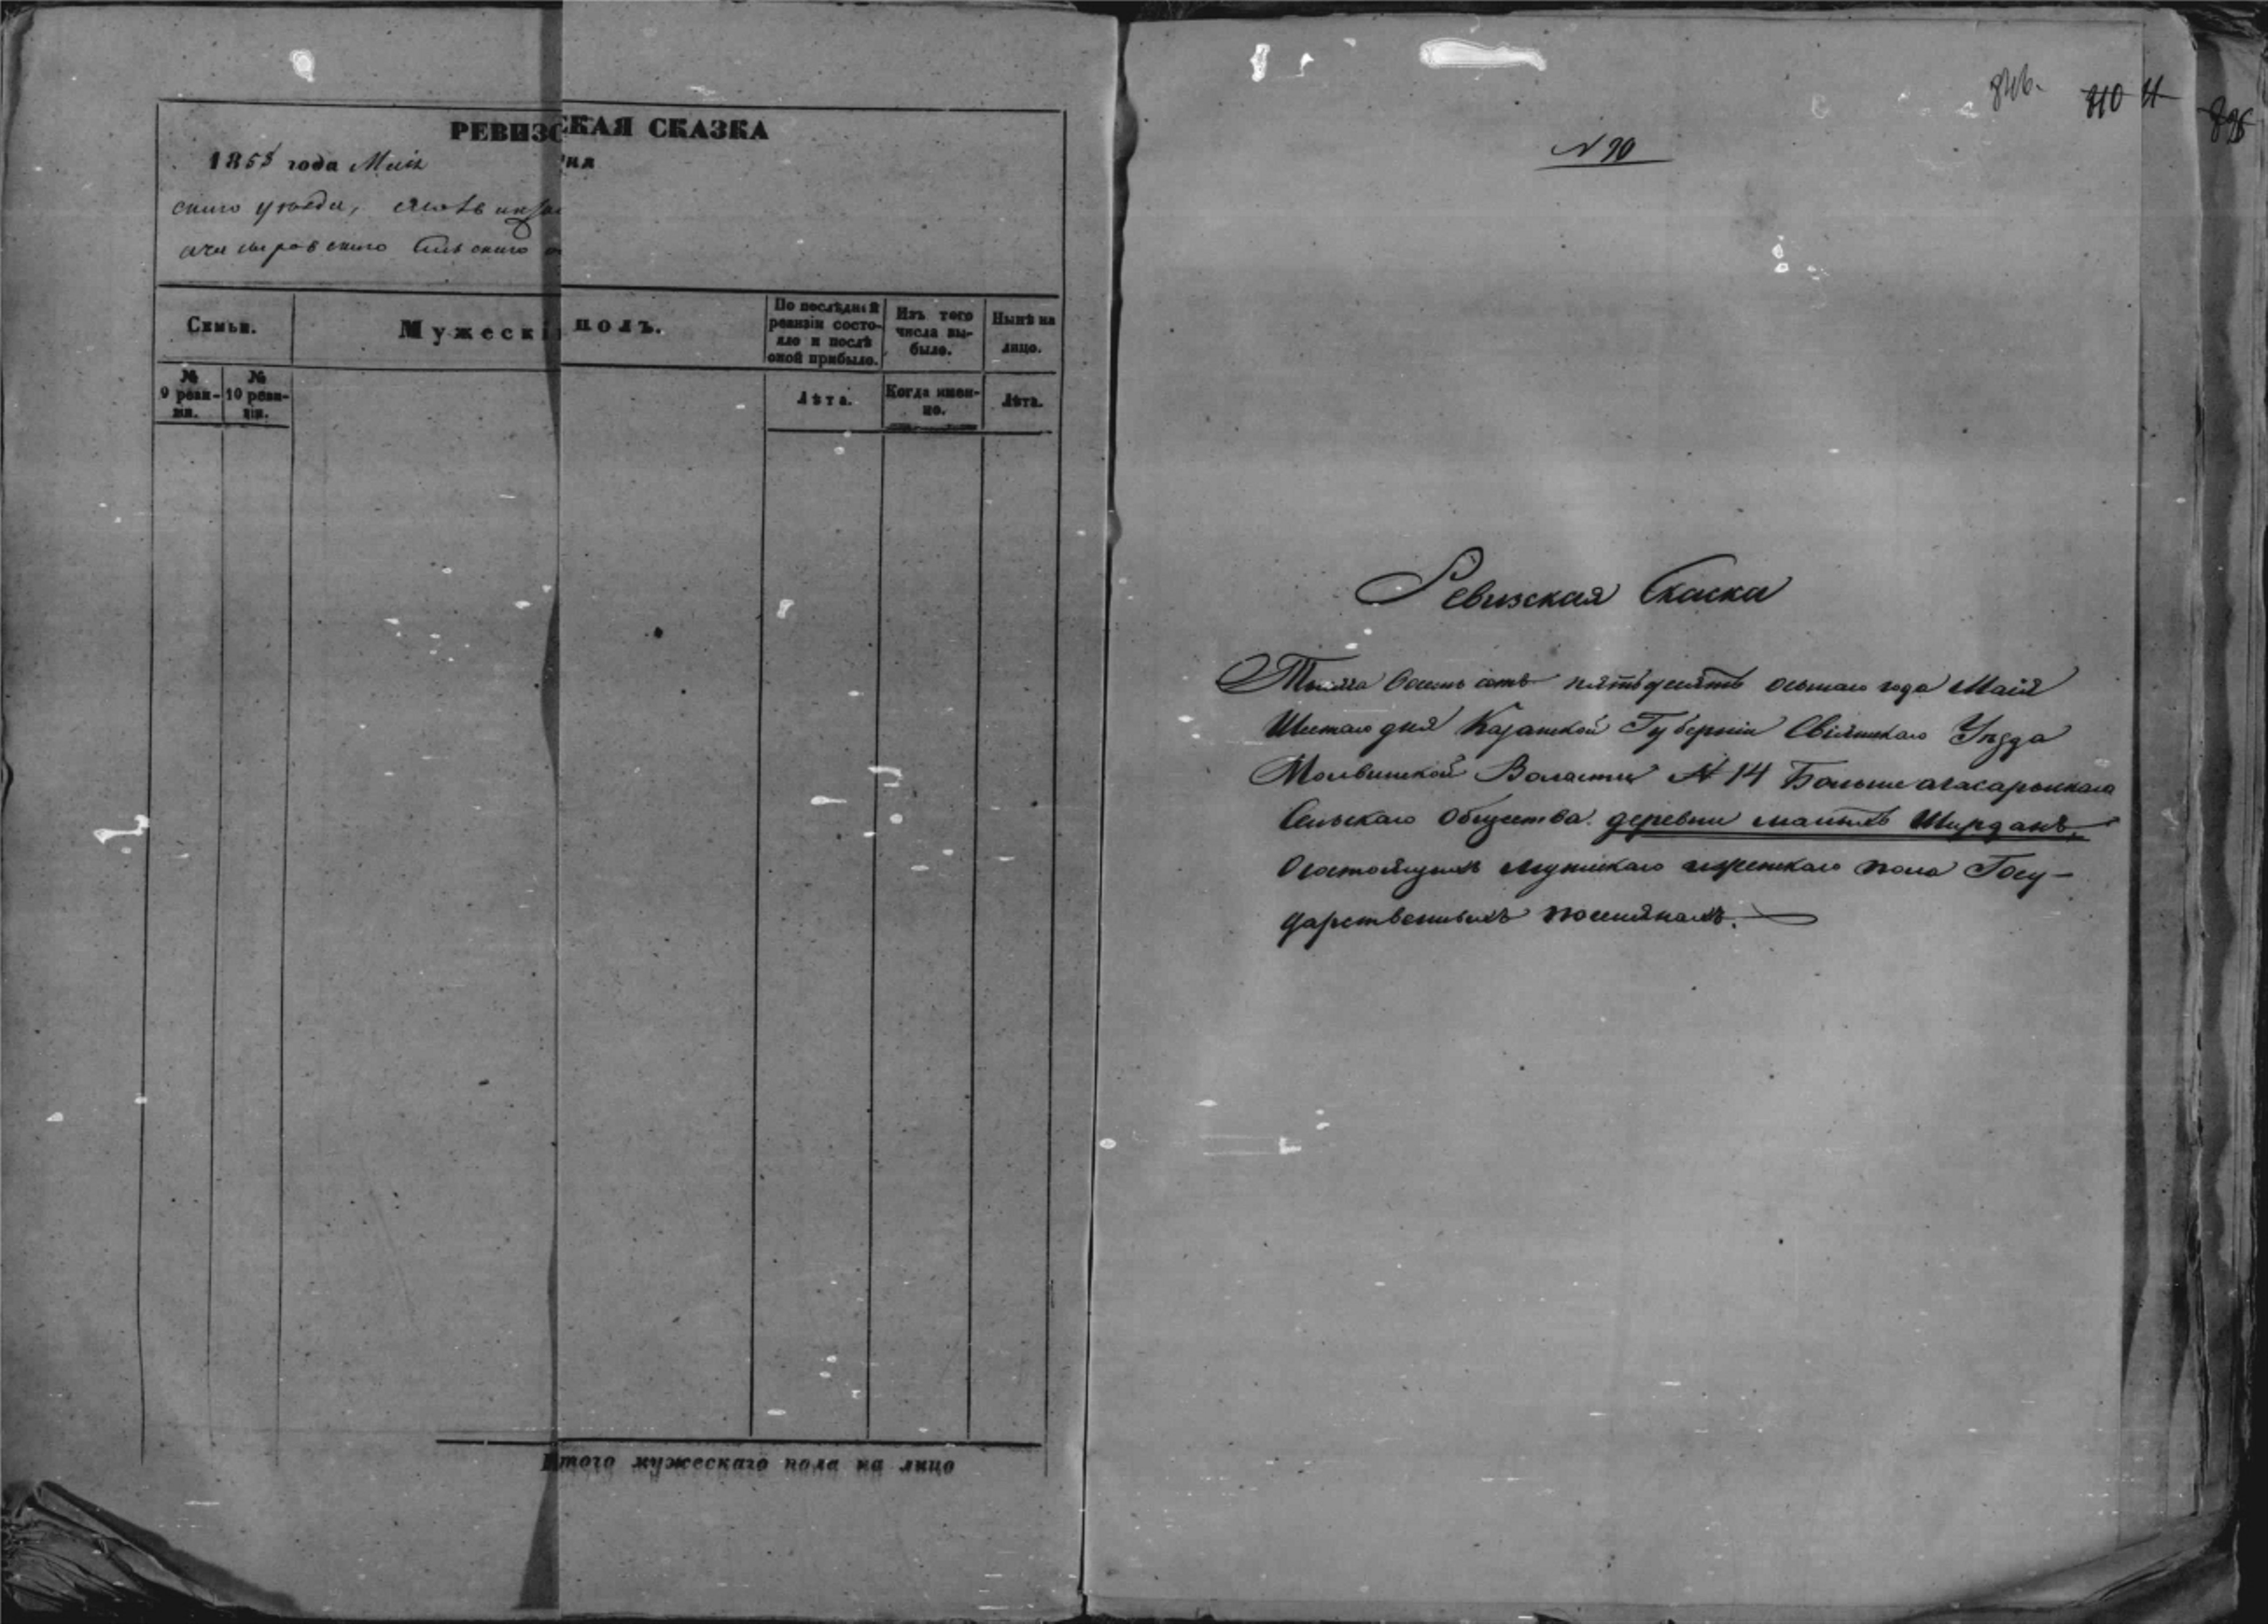 РЕВИЗСКАЯ СКАЗКА
1858 года Маія дня
скаго уѣзда,
скаго Сельскаго
Семьи.
Мужескій полъ.
По послѣдней ревизіи состояло и послѣ оной прибыло.
Изъ того числа выбыло.
Нынѣ на лицо.
№ 9 ревизіи.
№ 10 ревизіи.
Лѣта.
Когда именно.
Лѣта.
Итого мужескаго пола на лицо
846.
810
N 90
Ревизская Скаска
Тысяча восемь сотъ пятьдесятъ осьмаго года Маія
Шестаго дня Казанской Губерніи Свіяжскаго Уѣзда
Молвинской Волости № 14 Большеатасарынскаго
Сельскаго Общества деревни малыхъ Ширданъ,
О состоящихъ мужескаго и женскаго пола Госу-
дарственныхъ поселянахъ.